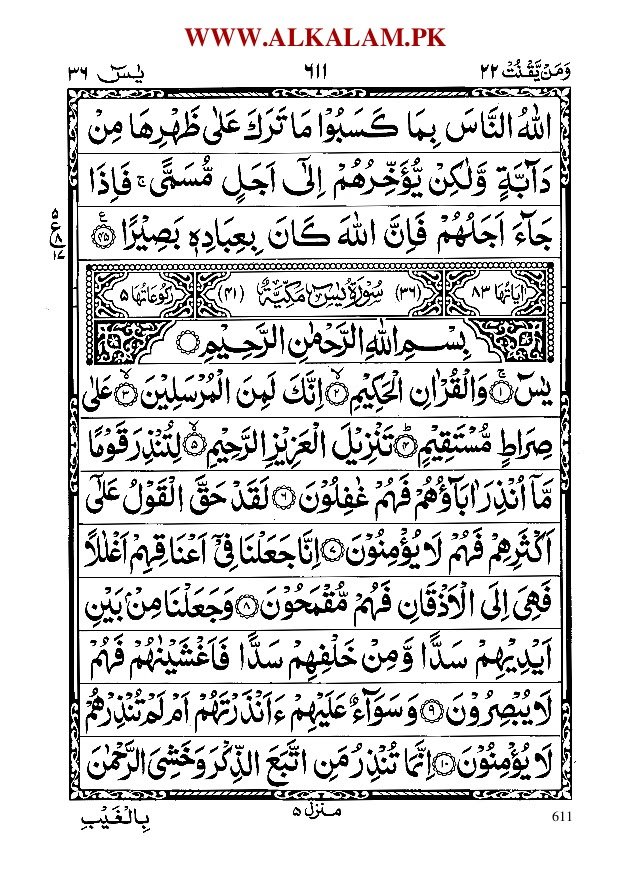 WWW.ALKALAM.PK
وَمَنْ يَّقْنُتْ ٢٢
٦١١
يٰسٓ ٣٦
اللّٰهُ النَّاسَ بِمَا كَسَبُوْا مَا تَرَكَ عَلٰى ظَهْرِهَا مِنْ
دَآبَّةٍ وَّلٰكِنْ يُّؤَخِّرُهُمْ اِلٰٓى اَجَلٍ مُّسَمًّى ۚ فَاِذَا
جَآءَ اَجَلُهُمْ فَاِنَّ اللّٰهَ كَانَ بِعِبَادِهٖ بَصِيْرًا ﴿٤٥﴾
٥
ع
٨
١٧
اٰيَاتُهَا ٨٣
(٣٦) سُوْرَةُ يٰسٓ مَكِّيَّةٌ (٤١)
رُكُوْعَاتُهَا ٥
بِسْمِ اللّٰهِ الرَّحْمٰنِ الرَّحِيْمِ
يٰسٓ ۚ﴿١﴾ وَالْقُرْاٰنِ الْحَكِيْمِ ۙ﴿٢﴾ اِنَّكَ لَمِنَ الْمُرْسَلِيْنَ ۙ﴿٣﴾ عَلٰى
صِرَاطٍ مُّسْتَقِيْمٍ ؕ﴿٤﴾ تَنْزِيْلَ الْعَزِيْزِ الرَّحِيْمِ ۙ﴿٥﴾ لِتُنْذِرَ قَوْمًا
مَّآ اُنْذِرَ اٰبَآؤُهُمْ فَهُمْ غٰفِلُوْنَ ﴿٦﴾ لَقَدْ حَقَّ الْقَوْلُ عَلٰٓى
اَكْثَرِهِمْ فَهُمْ لَا يُؤْمِنُوْنَ ﴿٧﴾ اِنَّا جَعَلْنَا فِيْٓ اَعْنَاقِهِمْ اَغْلٰلًا
فَهِيَ اِلَى الْاَذْقَانِ فَهُمْ مُّقْمَحُوْنَ ﴿٨﴾ وَجَعَلْنَا مِنْۢ بَيْنِ
اَيْدِيْهِمْ سَدًّا وَّمِنْ خَلْفِهِمْ سَدًّا فَاَغْشَيْنٰهُمْ فَهُمْ
لَا يُبْصِرُوْنَ ﴿٩﴾ وَسَوَآءٌ عَلَيْهِمْ ءَاَنْذَرْتَهُمْ اَمْ لَمْ تُنْذِرْهُمْ
لَا يُؤْمِنُوْنَ ﴿١٠﴾ اِنَّمَا تُنْذِرُ مَنِ اتَّبَعَ الذِّكْرَ وَخَشِيَ الرَّحْمٰنَ
منزل ٥
بِالْغَيْبِ
611